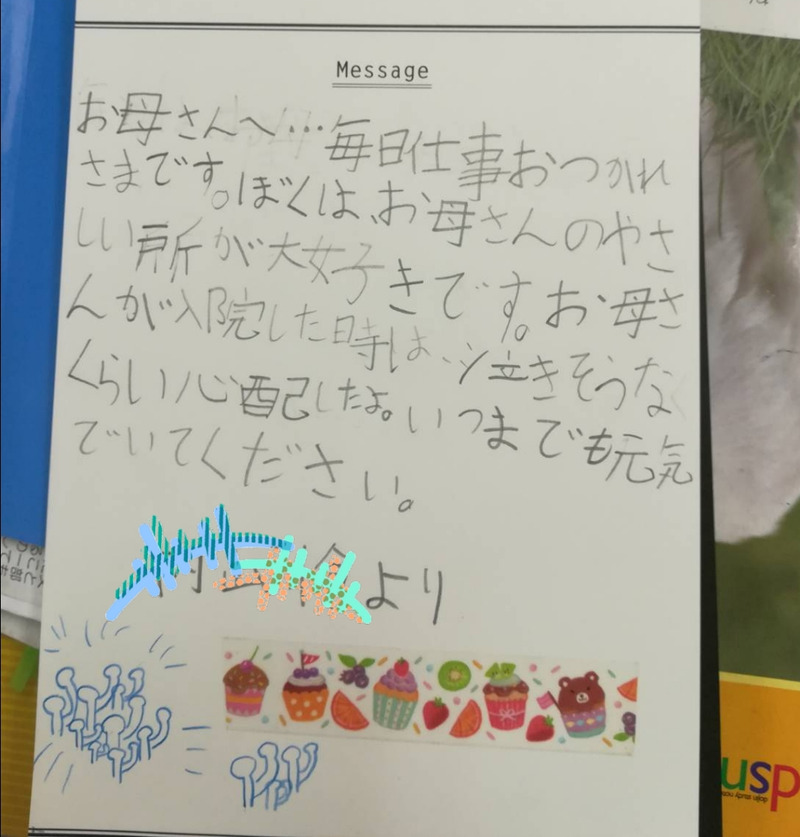 Message
お母さんへ…毎日仕事おつかれ
さまです。ぼくは、お母さんのやさ
しい所が大好きです。お母さ
んが入院した時は、泣きそうな
くらい心配したよ。いつまでも元気
でいてください。
より
usp